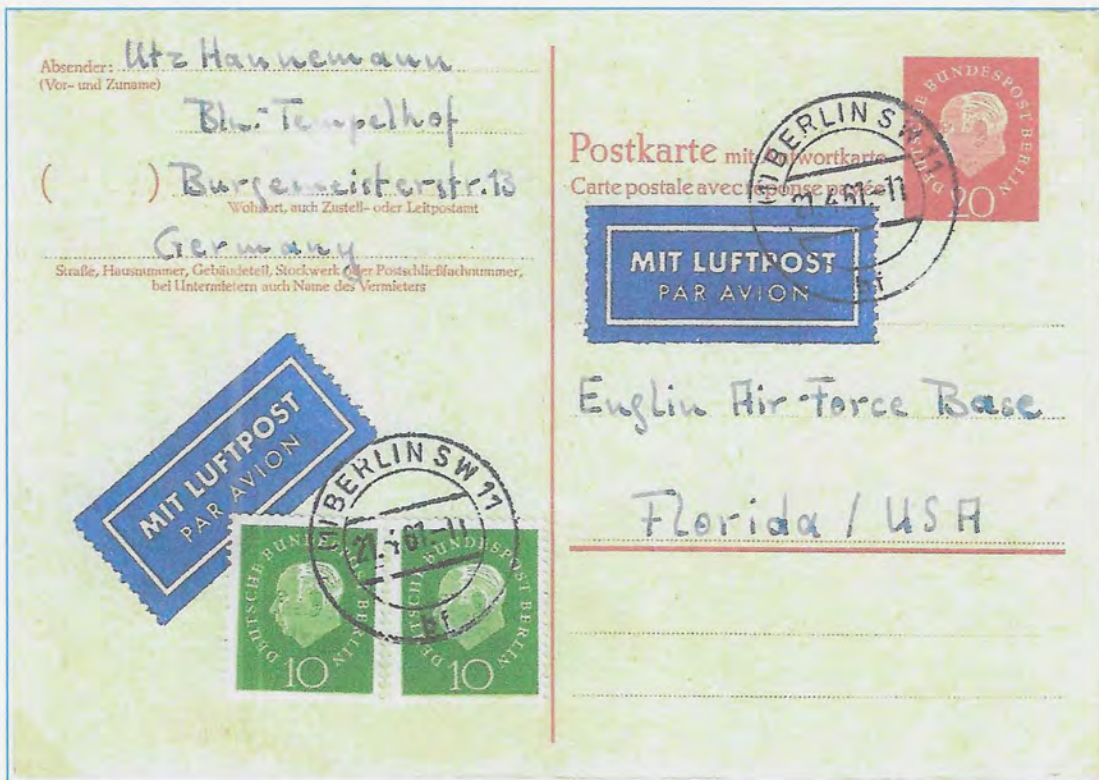 Absender: Utz Hannemann
(Vor- und Zuname)
Bln.-Tempelhof
( ) Burgemeisterstr. 13
Wohnort, auch Zustell- oder Leitpostamt
Germany
Straße, Hausnummer, Gebäudeteil, Stockwerk oder Postschließfachnummer,
bei Untermietern auch Name des Vermieters
MIT LUFTPOST
PAR AVION
BERLIN SW 11
21.4.61.-11
bf
DEUTSCHE BUNDESPOST BERLIN
10
DEUTSCHE BUNDESPOST BERLIN
10
DEUTSCHE BUNDESPOST BERLIN
20
BERLIN SW 11
21.4.61.-11
Postkarte mit Antwortkarte
Carte postale avec réponse payée
MIT LUFTPOST
PAR AVION
Englin Air-Force Base
Florida / USA